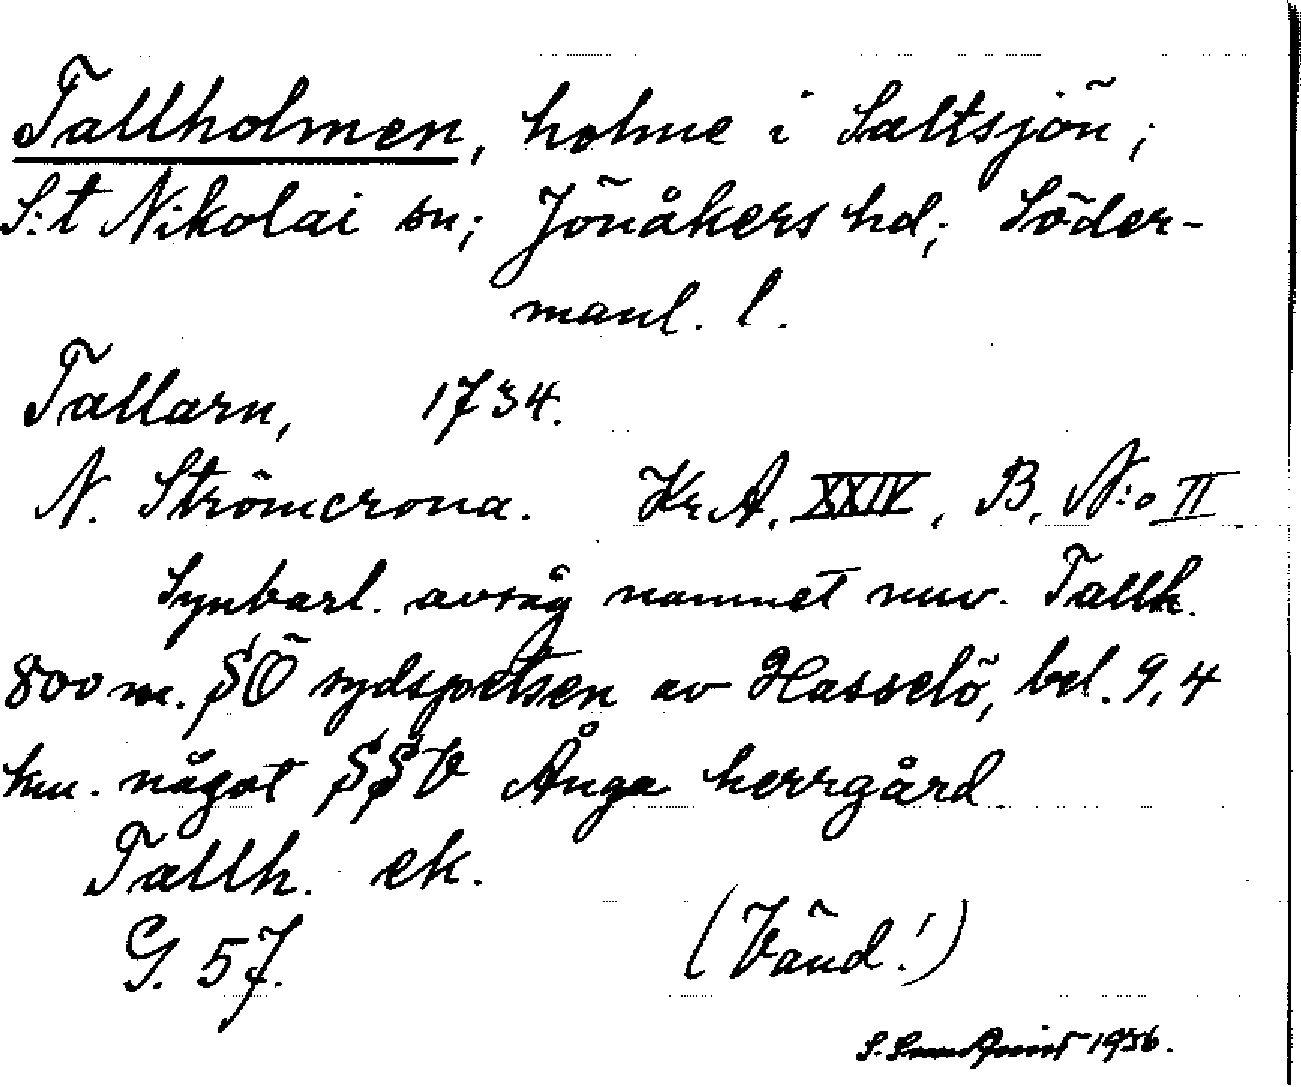 Tallholmen, holme i Saltsjön;
S:t Nikolai sn; Jönåkers hd; Söder-
manl. l.
Tallarn, 1734.
N. Strömcrona. KrA. XXIV, B. N:o II
Synbarl. avsåg namnet nuv. Tallh.
800 m. SÖ sydspetsen av Hasselö, bel. 9,4
km. något SSV Ånga herrgård
Tallh. ek.
G. 57.
(Vänd!)
S. 1936.